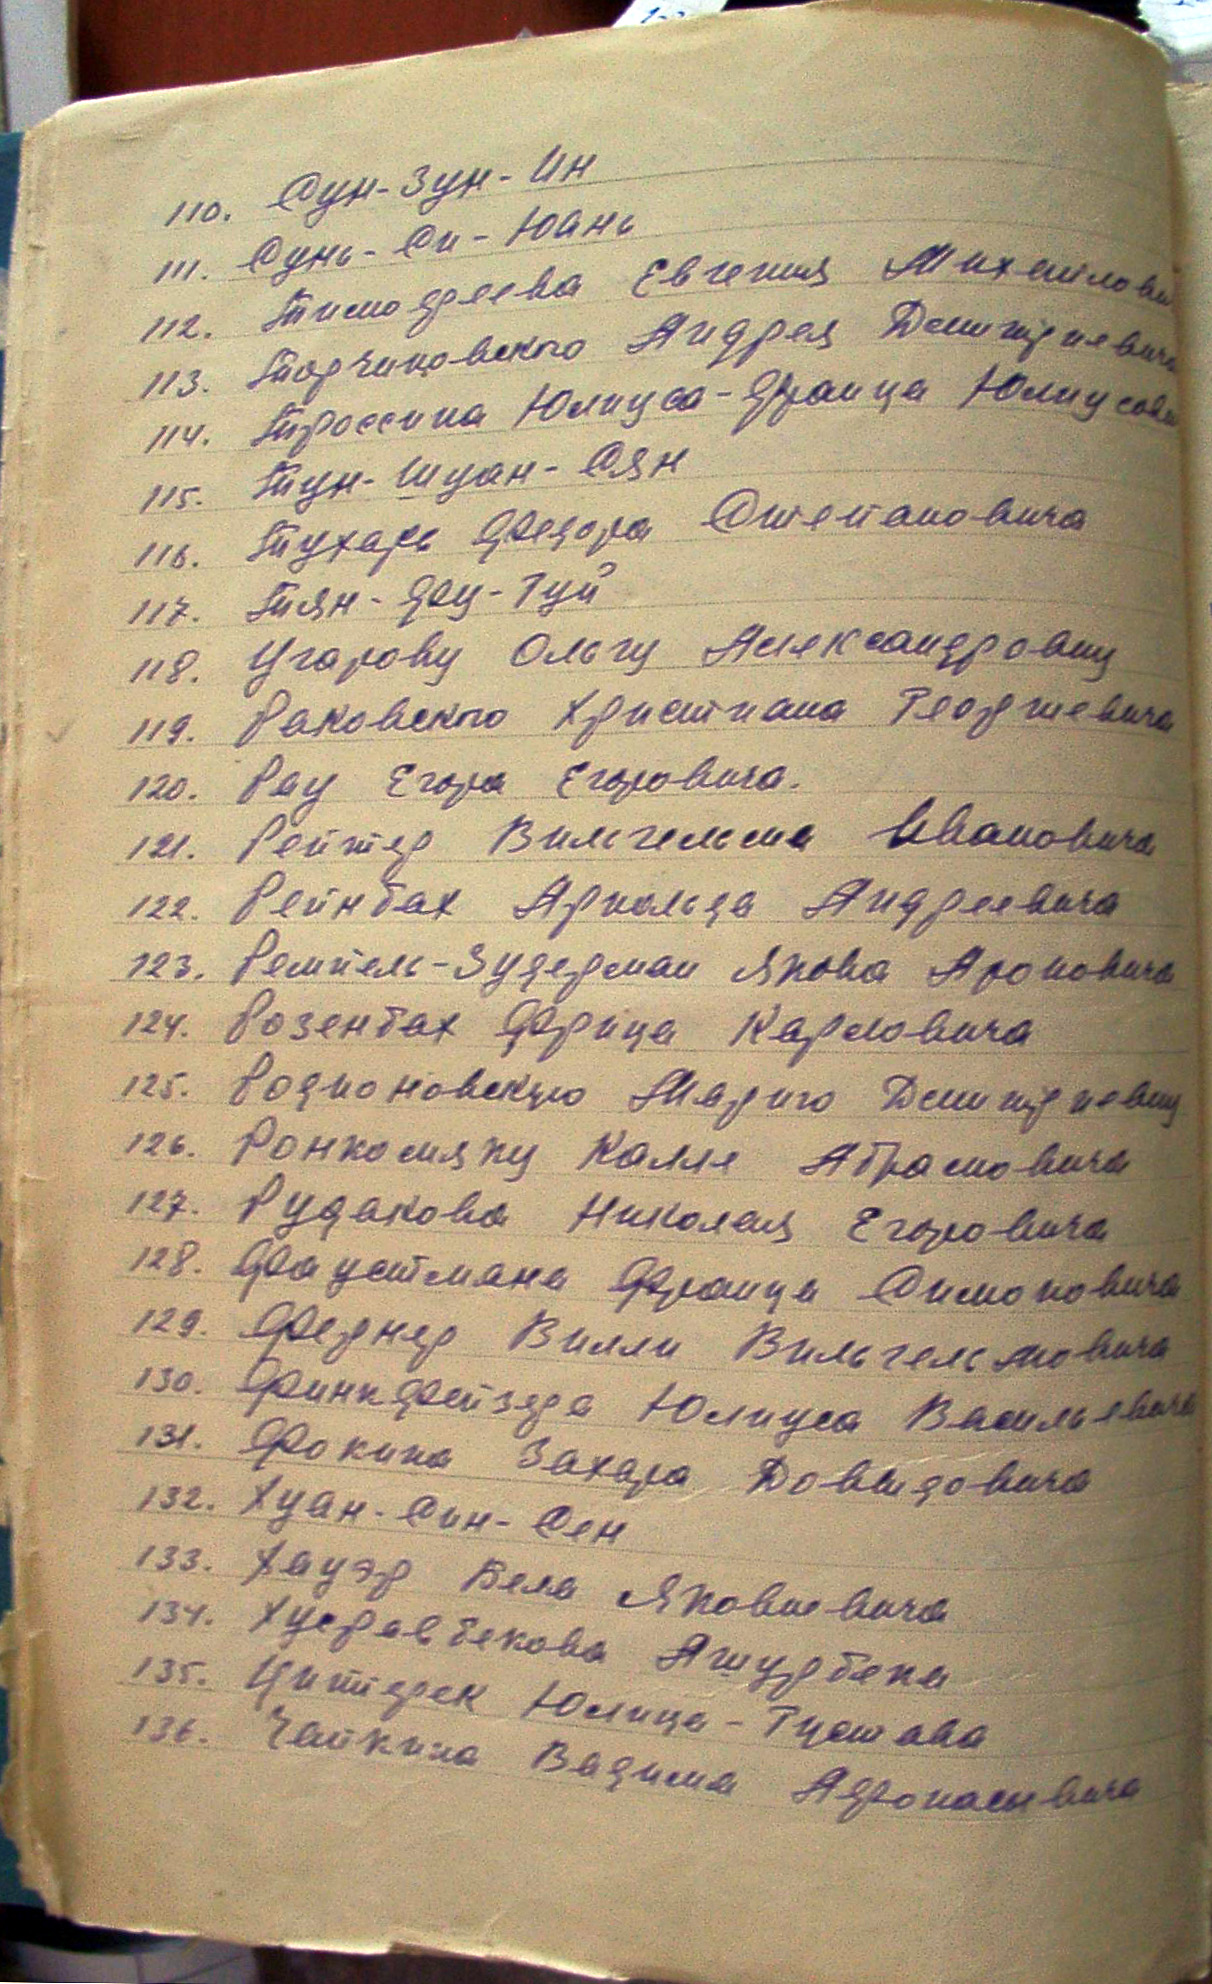 110. Сун-Зун-Ин
111. Сунь-Си-Юань
112. Тимофеева Евгения Михайлови
113. Торчиновского Андрея Дмитриевича
114. Троссина Юлиуса-Франца Юлиусови
115. Тун-Шуан-Сян
116. Тухарь Федора Степановича
117. Тян-Фу-Гуй
118. Угарову Ольгу Александровну
119. Раковского Христиана Георгиевича
120. Рау Егора Егоровича.
121. Рейтер Вильгельма Ивановича
122. Рейнбах Арнольда Андреевича
123. Ремпель-Зудерман Якова Ароновича
124. Розенбах Фрица Карловича
125. Родионовскую Марию Дмитриевну
126. Ронкомяки Калле Абрамовича
127. Рудакова Николая Егоровича
128. Фаустмана Франца Симоновича
129. Фернер Вилли Вильгельмовича
130. Финкфейзера Юлиуса Васильевича
131. Фокина Захара Довыдовича
132. Хуан-Син-Сен
133. Хауэр Бела Яковлевича
134. Хусравбекова Ашурбека
135. Юлица-Густава
136. Чайкина Вадима Афонасьевича